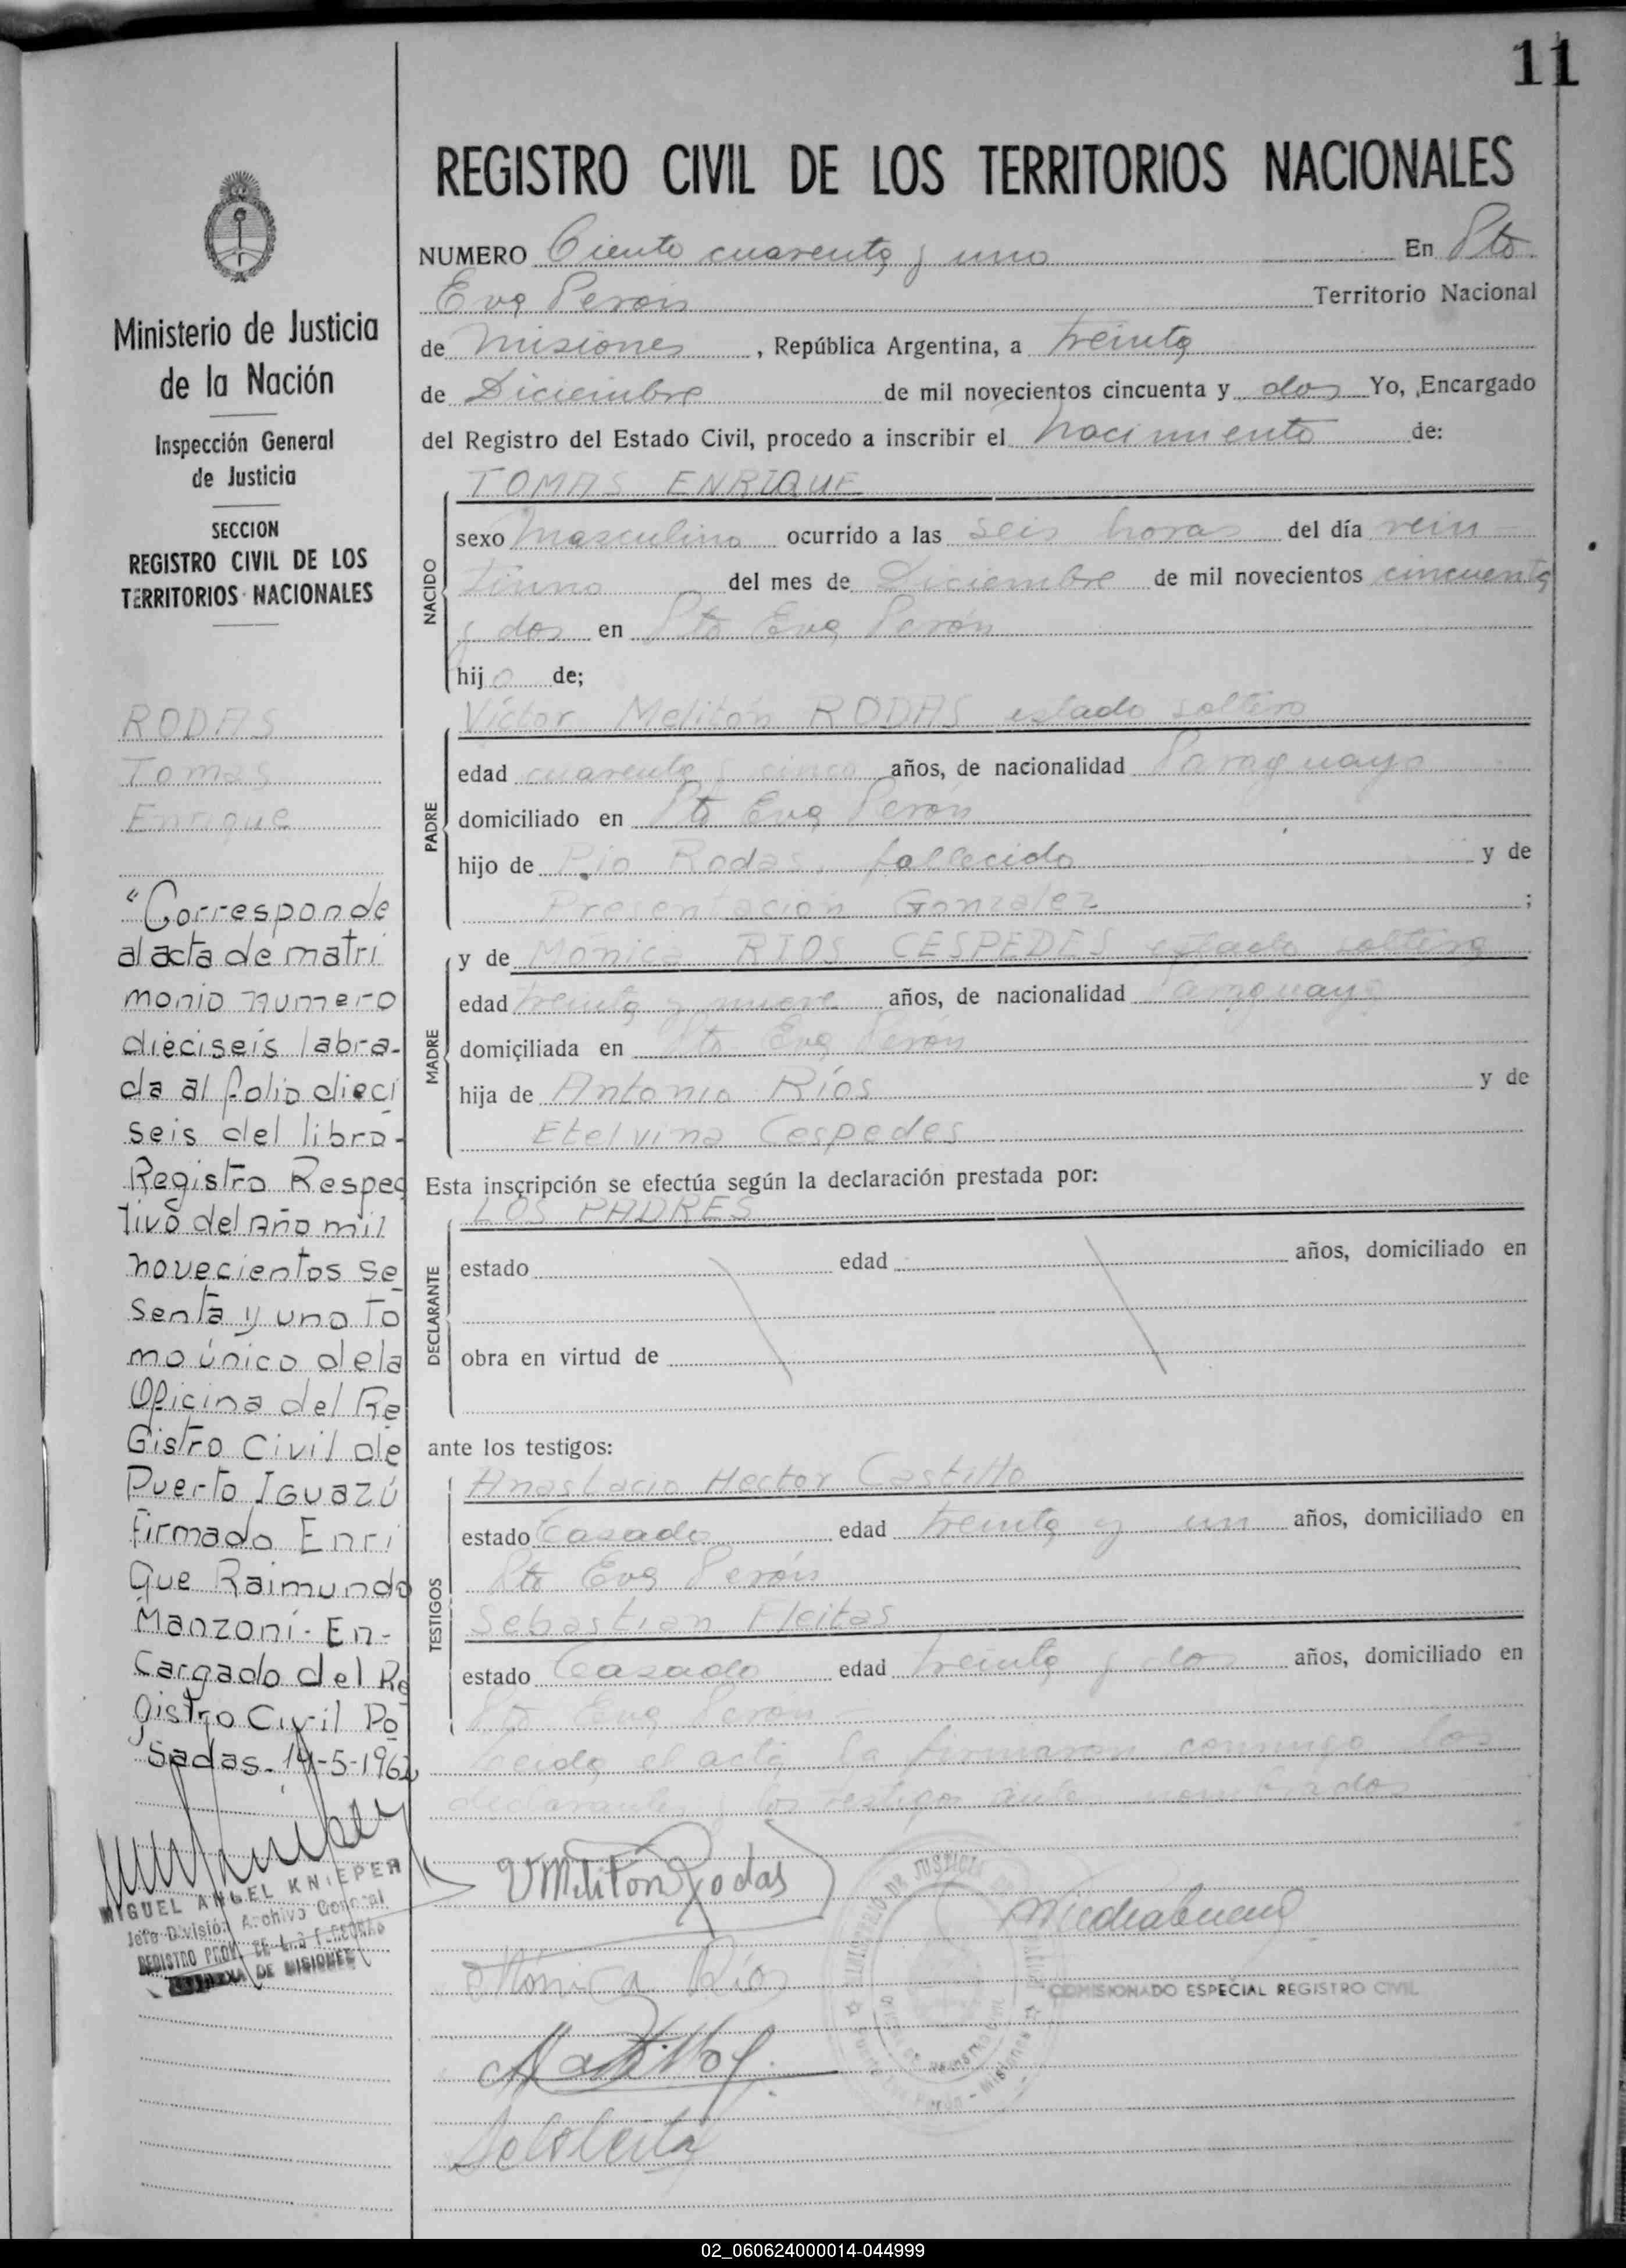 11
REGISTRO CIVIL DE LOS TERRITORIOS NACIONALES
NUMERO Ciento cuarenta y uno En Pto.
Eva Perón Territorio Nacional
de Misiones, República Argentina, a treinta
de Diciembre de mil novecientos cincuenta y dos Yo, Encargado
del Registro del Estado Civil, procedo a inscribir el nacimiento de:
TOMAS ENRIQUE
NACIDO
sexo Masculino ocurrido a las seis horas del día vein-
tiuno del mes de Diciembre de mil novecientos cincuenta
y dos en Pto Eva Perón
hijo de;
Víctor Melitón RODAS estado soltero
PADRE
edad cuarenta y cinco años, de nacionalidad Paraguaya
domiciliado en Pto Eva Perón
hijo de Pio Rodas, fallecido y de
Presentación Gonzalez ;
y de Mónica RIOS CESPEDES estado soltera
MADRE
edad treinta y nueve años, de nacionalidad Paraguaya
domiciliada en Pto Eva Perón
hija de Antonio Ríos y de
Etelvina Cespedes
Esta inscripción se efectúa según la declaración prestada por:
LOS PADRES
DECLARANTE
estado edad años, domiciliado en
obra en virtud de
ante los testigos:
Anastacio Hector Castillo
TESTIGOS
estado Casado edad treinta y un años, domiciliado en
Pto Eva Perón
Sebastian Fleitas
estado Casado edad treinta y dos años, domiciliado en
Pto Eva Perón
Leida el acta la firmaron conmigo los
declarantes y los testigos ante nombrados
VMeliton Rodas
Mónica Ríos
COMISIONADO ESPECIAL REGISTRO CIVIL
MINISTERIO DE JUSTICIA
Ministerio de Justicia
de la Nación
Inspección General
de Justicia
SECCION
REGISTRO CIVIL DE LOS
TERRITORIOS NACIONALES
RODAS
Tomas
Enrique
"Corresponde
al acta de matri
monio numero
dieciseis labra-
da al folio dieci
seis del libro-
Registro Respec
tivo del Año mil
novecientos se
senta y uno To
mo único de la
Oficina del Re
Gistro Civil de
Puerto IGuazú
firmado Enri
Que Raimundo
Manzoni- En-
Cargado del Re
gistro Civil Po
sadas- 14-5-1962
MIGUEL ANGEL KNIEPER
Jefe División Archivo General
REGISTRO PROV. DE LAS PERSONAS
DE MISIONES
02_060624000014-044999